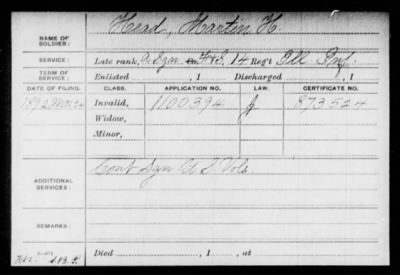 NAME OF SOLDIER: Head, Martin H.
SERVICE: Late rank, A. Sgn F&S, 14 Reg't Ill Inf.
TERM OF SERVICE: Enlisted , 1 Discharged , 1
DATE OF FILING. CLASS. APPLICATION NO. LAW. CERTIFICATE NO.
1892 Invalid, 1100394 J 873524
Widow,
Minor,
ADDITIONAL SERVICES: Cont Sgn U S Vols
REMARKS:
Died , 1 , at